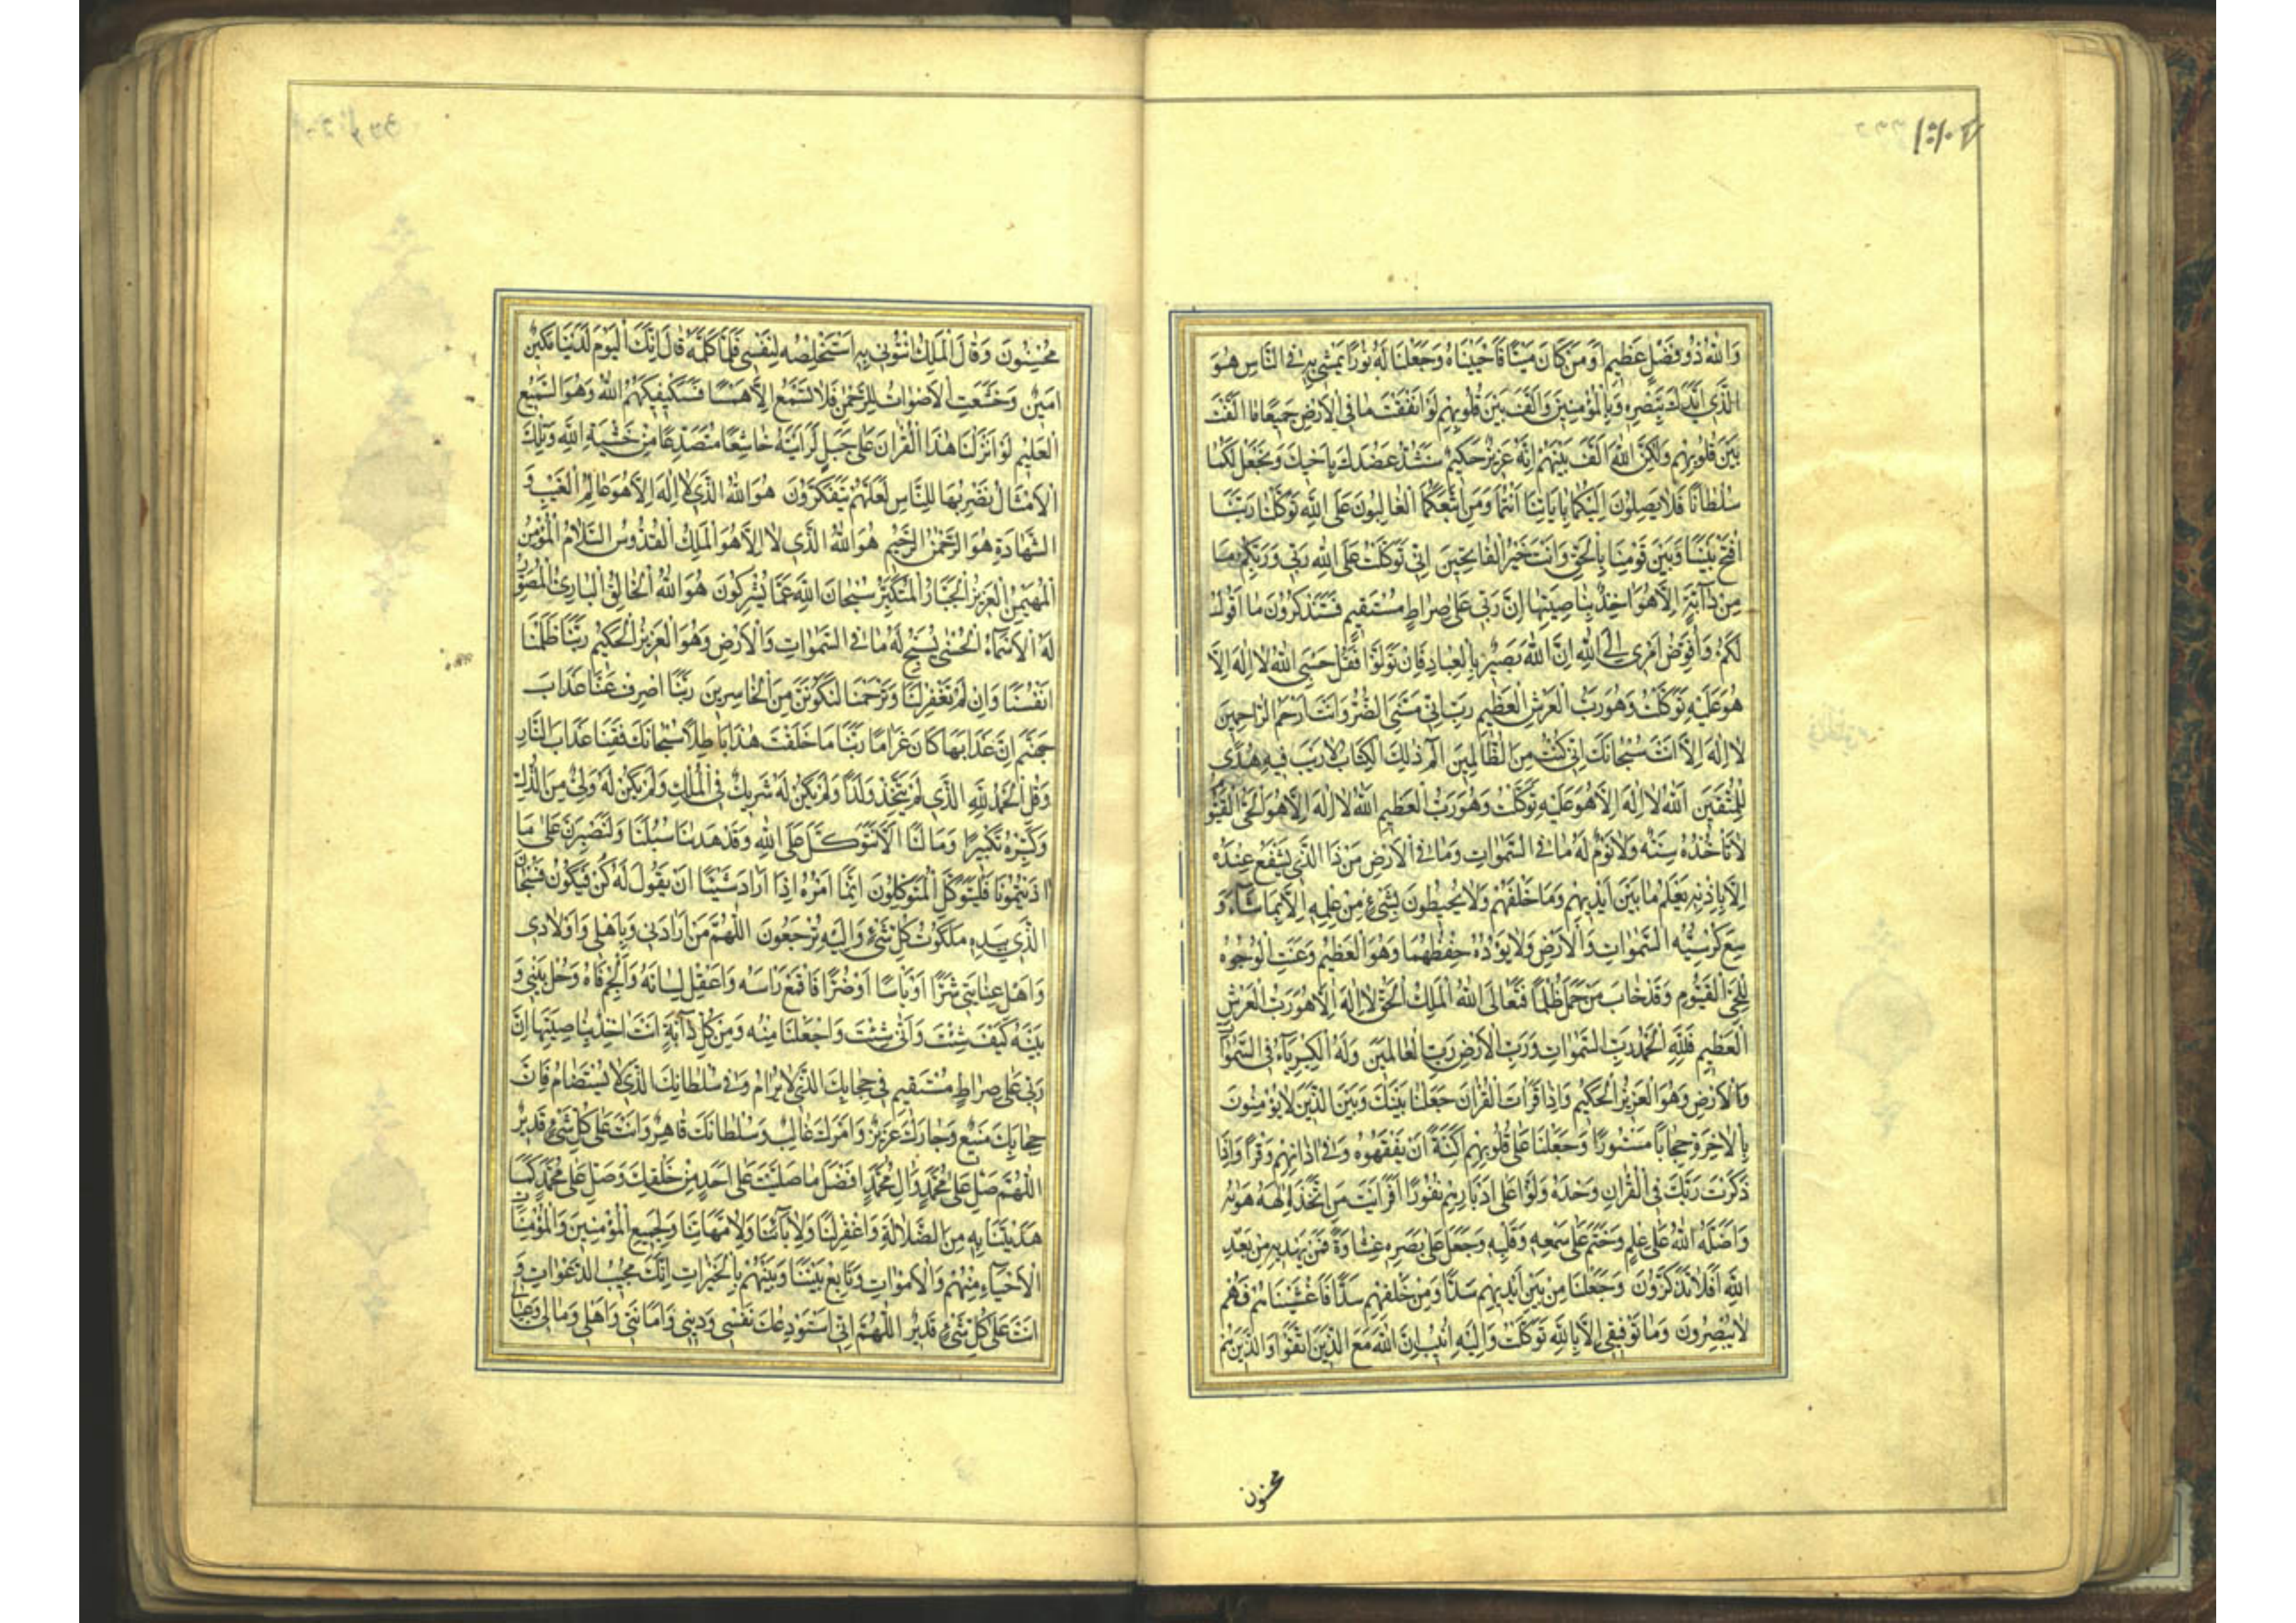 وَاللّٰهُ ذُو فَضْلٍ عَظِيمٍ اَوَمَنْ كَانَ مَيْتًا فَاَحْيَيْنَاهُ وَجَعَلْنَا لَهُ نُورًا يَمْشِي بِهِ فِي النَّاسِ هُوَ
الَّذِي اَيَّدَكَ بِنَصْرِهِ وَبِالْمُؤْمِنِينَ وَاَلَّفَ بَيْنَ قُلُوبِهِمْ لَوْ اَنْفَقْتَ مَا فِي الْاَرْضِ جَمِيعًا مَا اَلَّفْتَ
بَيْنَ قُلُوبِهِمْ وَلٰكِنَّ اللّٰهَ اَلَّفَ بَيْنَهُمْ اِنَّهُ عَزِيزٌ حَكِيمٌ سَنَشُدُّ عَضُدَكَ بِاَخِيكَ وَنَجْعَلُ لَكُمَا
سُلْطَانًا فَلَا يَصِلُونَ اِلَيْكُمَا بِاٰيَاتِنَا اَنْتُمَا وَمَنِ اتَّبَعَكُمَا الْغَالِبُونَ عَلَى اللّٰهِ تَوَكَّلْنَا رَبَّنَا
افْتَحْ بَيْنَنَا وَبَيْنَ قَوْمِنَا بِالْحَقِّ وَاَنْتَ خَيْرُ الْفَاتِحِينَ اِنِّي تَوَكَّلْتُ عَلَى اللّٰهِ رَبِّي وَرَبِّكُمْ مَا
مِنْ دَآبَّةٍ اِلَّا هُوَ اٰخِذٌ بِنَاصِيَتِهَا اِنَّ رَبِّي عَلٰى صِرَاطٍ مُسْتَقِيمٍ فَسَتَذْكُرُونَ مَا اَقُولُ
لَكُمْ وَاُفَوِّضُ اَمْرِي اِلَى اللّٰهِ اِنَّ اللّٰهَ بَصِيرٌ بِالْعِبَادِ فَاِنْ تَوَلَّوْا فَقُلْ حَسْبِيَ اللّٰهُ لَا اِلٰهَ اِلَّا
هُوَ عَلَيْهِ تَوَكَّلْتُ وَهُوَ رَبُّ الْعَرْشِ الْعَظِيمِ رَبِّ اِنِّي مَسَّنِيَ الضُّرُّ وَاَنْتَ اَرْحَمُ الرَّاحِمِينَ
لَا اِلٰهَ اِلَّا اَنْتَ سُبْحَانَكَ اِنِّي كُنْتُ مِنَ الظَّالِمِينَ الٓمٓ ذٰلِكَ الْكِتَابُ لَا رَيْبَ فِيهِ هُدًى
لِلْمُتَّقِينَ اَللّٰهُ لَا اِلٰهَ اِلَّا هُوَ عَلَيْهِ تَوَكَّلْتُ وَهُوَ رَبُّ الْعَظِيمِ اَللّٰهُ لَا اِلٰهَ اِلَّا هُوَ الْحَيُّ الْقَيُّومُ
لَا تَأْخُذُهُ سِنَةٌ وَلَا نَوْمٌ لَهُ مَا فِي السَّمٰوَاتِ وَمَا فِي الْاَرْضِ مَنْ ذَا الَّذِي يَشْفَعُ عِنْدَهُ
اِلَّا بِاِذْنِهِ يَعْلَمُ مَا بَيْنَ اَيْدِيهِمْ وَمَا خَلْفَهُمْ وَلَا يُحِيطُونَ بِشَيْءٍ مِنْ عِلْمِهِ اِلَّا بِمَا شَآءَ وَ
سِعَ كُرْسِيُّهُ السَّمٰوَاتِ وَالْاَرْضَ وَلَا يَؤُدُهُ حِفْظُهُمَا وَهُوَ الْعَظِيمُ وَعَنَتِ الْوُجُوهُ
لِلْحَيِّ الْقَيُّومِ وَقَدْ خَابَ مَنْ حَمَلَ ظُلْمًا فَتَعَالَى اللّٰهُ الْمَلِكُ الْحَقُّ لَا اِلٰهَ اِلَّا هُوَ رَبُّ الْعَرْشِ
الْعَظِيمِ فَلِلّٰهِ الْحَمْدُ رَبِّ السَّمٰوَاتِ وَرَبِّ الْاَرْضِ رَبِّ الْعَالَمِينَ وَلَهُ الْكِبْرِيَآءُ فِي السَّمٰوَاتِ
وَالْاَرْضِ وَهُوَ الْعَزِيزُ الْحَكِيمُ وَاِذَا قَرَاْتَ الْقُرْاٰنَ جَعَلْنَا بَيْنَكَ وَبَيْنَ الَّذِينَ لَا يُؤْمِنُونَ
بِالْاٰخِرَةِ حِجَابًا مَسْتُورًا وَجَعَلْنَا عَلٰى قُلُوبِهِمْ اَكِنَّةً اَنْ يَفْقَهُوهُ وَفِي اٰذَانِهِمْ وَقْرًا وَاِذَا
ذَكَرْتَ رَبَّكَ فِي الْقُرْاٰنِ وَحْدَهُ وَلَّوْا عَلٰى اَدْبَارِهِمْ نُفُورًا اَفَرَاَيْتَ مَنِ اتَّخَذَ اِلٰهَهُ هَوٰيهُ
وَاَضَلَّهُ اللّٰهُ عَلٰى عِلْمٍ وَخَتَمَ عَلٰى سَمْعِهِ وَقَلْبِهِ وَجَعَلَ عَلٰى بَصَرِهِ غِشَاوَةً فَمَنْ يَهْدِيهِ مِنْ بَعْدِ
اللّٰهِ اَفَلَا تَذَكَّرُونَ وَجَعَلْنَا مِنْ بَيْنِ اَيْدِيهِمْ سَدًّا وَمِنْ خَلْفِهِمْ سَدًّا فَاَغْشَيْنَاهُمْ فَهُمْ
لَا يُبْصِرُونَ وَمَا تَوْفِيقِي اِلَّا بِاللّٰهِ تَوَكَّلْتُ وَاِلَيْهِ اُنِيبُ اِنَّ اللّٰهَ مَعَ الَّذِينَ اتَّقَوْا وَالَّذِينَ هُمْ
محسنون
مُحْسِنُونَ وَقَالَ الْمَلِكُ ائْتُونِي بِهِ اَسْتَخْلِصْهُ لِنَفْسِي فَلَمَّا كَلَّمَهُ قَالَ اِنَّكَ الْيَوْمَ لَدَيْنَا مَكِينٌ
اَمِينٌ وَخَشَعَتِ الْاَصْوَاتُ لِلرَّحْمٰنِ فَلَا تَسْمَعُ اِلَّا هَمْسًا فَسَيَكْفِيكَهُمُ اللّٰهُ وَهُوَ السَّمِيعُ
الْعَلِيمُ لَوْ اَنْزَلْنَا هٰذَا الْقُرْاٰنَ عَلٰى جَبَلٍ لَرَاَيْتَهُ خَاشِعًا مُتَصَدِّعًا مِنْ خَشْيَةِ اللّٰهِ وَتِلْكَ
الْاَمْثَالُ نَضْرِبُهَا لِلنَّاسِ لَعَلَّهُمْ يَتَفَكَّرُونَ هُوَ اللّٰهُ الَّذِي لَا اِلٰهَ اِلَّا هُوَ عَالِمُ الْغَيْبِ وَ
الشَّهَادَةِ هُوَ الرَّحْمٰنُ الرَّحِيمُ هُوَ اللّٰهُ الَّذِي لَا اِلٰهَ اِلَّا هُوَ الْمَلِكُ الْقُدُّوسُ السَّلَامُ الْمُؤْمِنُ
الْمُهَيْمِنُ الْعَزِيزُ الْجَبَّارُ الْمُتَكَبِّرُ سُبْحَانَ اللّٰهِ عَمَّا يُشْرِكُونَ هُوَ اللّٰهُ الْخَالِقُ الْبَارِئُ الْمُصَوِّرُ
لَهُ الْاَسْمَآءُ الْحُسْنٰى يُسَبِّحُ لَهُ مَا فِي السَّمٰوَاتِ وَالْاَرْضِ وَهُوَ الْعَزِيزُ الْحَكِيمُ رَبَّنَا ظَلَمْنَا
اَنْفُسَنَا وَاِنْ لَمْ تَغْفِرْ لَنَا وَتَرْحَمْنَا لَنَكُونَنَّ مِنَ الْخَاسِرِينَ رَبَّنَا اصْرِفْ عَنَّا عَذَابَ
جَهَنَّمَ اِنَّ عَذَابَهَا كَانَ غَرَامًا رَبَّنَا مَا خَلَقْتَ هٰذَا بَاطِلًا سُبْحَانَكَ فَقِنَا عَذَابَ النَّارِ
وَقُلِ الْحَمْدُ لِلّٰهِ الَّذِي لَمْ يَتَّخِذْ وَلَدًا وَلَمْ يَكُنْ لَهُ شَرِيكٌ فِي الْمُلْكِ وَلَمْ يَكُنْ لَهُ وَلِيٌّ مِنَ الذُّلِّ
وَكَبِّرْهُ تَكْبِيرًا وَمَا لَنَا اَلَّا نَتَوَكَّلَ عَلَى اللّٰهِ وَقَدْ هَدٰينَا سُبُلَنَا وَلَنَصْبِرَنَّ عَلٰى مَا
اٰذَيْتُمُونَا فَلْيَتَوَكَّلِ الْمُتَوَكِّلُونَ اِنَّمَا اَمْرُهُ اِذَا اَرَادَ شَيْئًا اَنْ يَقُولَ لَهُ كُنْ فَيَكُونُ فَسُبْحَانَ
الَّذِي بِيَدِهِ مَلَكُوتُ كُلِّ شَيْءٍ وَاِلَيْهِ تُرْجَعُونَ اَللّٰهُمَّ مَنْ اَرَادَنِي وَبِاَهْلِي وَاَوْلَادِي
وَاَهْلِ عِنَايَتِي شَرًّا اَوْ بَاْسًا اَوْ ضُرًّا فَاقْمَعْ رَاْسَهُ وَاعْقِلْ لِسَانَهُ وَاَلْجِمْ فَاهُ وَحُلْ بَيْنِي وَ
بَيْنَهُ كَيْفَ شِئْتَ وَاَنّٰى شِئْتَ وَاجْعَلْنَا مِنْهُ وَمِنْ كُلِّ دَآبَّةٍ اَنْتَ اٰخِذٌ بِنَاصِيَتِهَا اِنَّ
رَبِّي عَلٰى صِرَاطٍ مُسْتَقِيمٍ فِي حِجَابِكَ الَّذِي لَا يُرَامُ وَفِي سُلْطَانِكَ الَّذِي لَا يُسْتَضَامُ فَاِنَّ
حِجَابَكَ مَنِيعٌ وَجَارَكَ عَزِيزٌ وَاَمْرَكَ غَالِبٌ وَسُلْطَانَكَ قَاهِرٌ وَاَنْتَ عَلٰى كُلِّ شَيْءٍ قَدِيرٌ
اَللّٰهُمَّ صَلِّ عَلٰى مُحَمَّدٍ وَاٰلِ مُحَمَّدٍ اَفْضَلَ مَا صَلَّيْتَ عَلٰى اَحَدٍ مِنْ خَلْقِكَ وَصَلِّ عَلٰى مُحَمَّدٍ كَمَا
هَدَيْتَنَا بِهِ مِنَ الضَّلَالَةِ وَاغْفِرْ لَنَا وَلِاٰبَآئِنَا وَلِاُمَّهَاتِنَا وَلِجَمِيعِ الْمُؤْمِنِينَ وَالْمُؤْمِنَاتِ
الْاَحْيَآءِ مِنْهُمْ وَالْاَمْوَاتِ وَتَابِعْ بَيْنَنَا وَبَيْنَهُمْ بِالْخَيْرَاتِ اِنَّكَ مُجِيبُ الدَّعَوَاتِ وَ
اَنْتَ عَلٰى كُلِّ شَيْءٍ قَدِيرٌ اَللّٰهُمَّ اِنِّي اَسْتَوْدِعُكَ نَفْسِي وَدِينِي وَاَمَانَتِي وَاَهْلِي وَمَالِي وَعِيَالِي